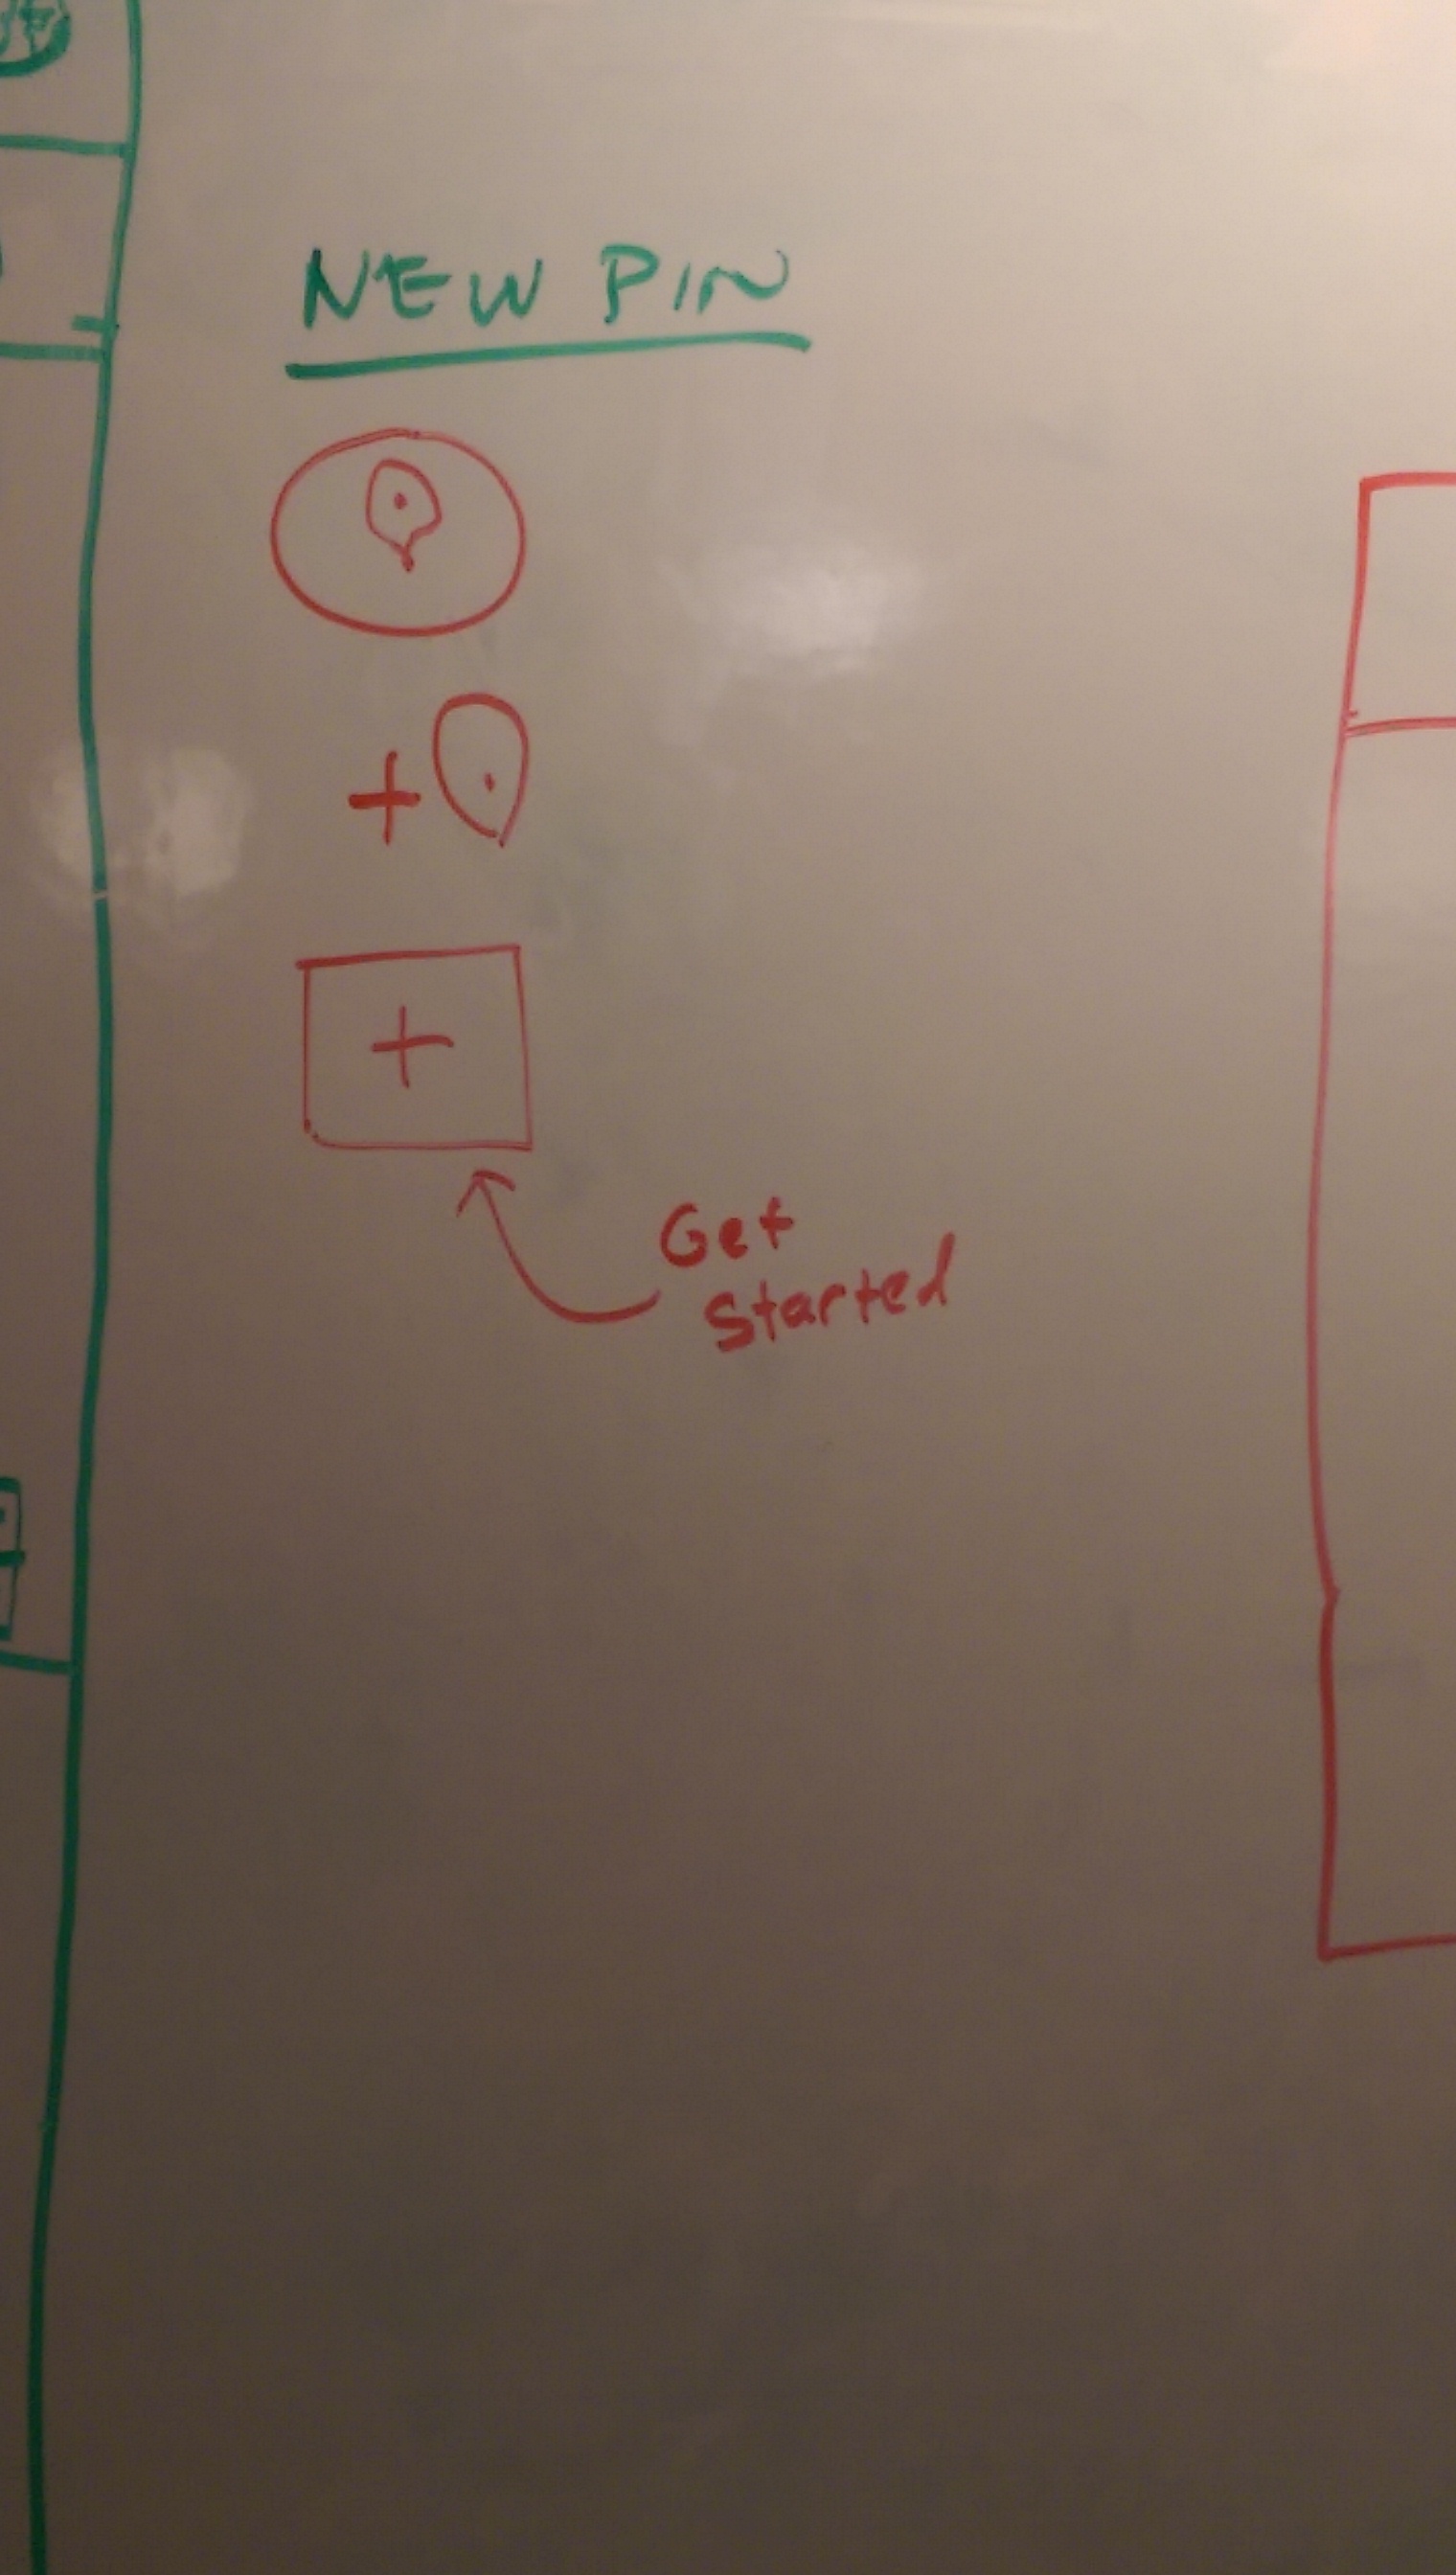 NEW PIN
+
+
Get
Started